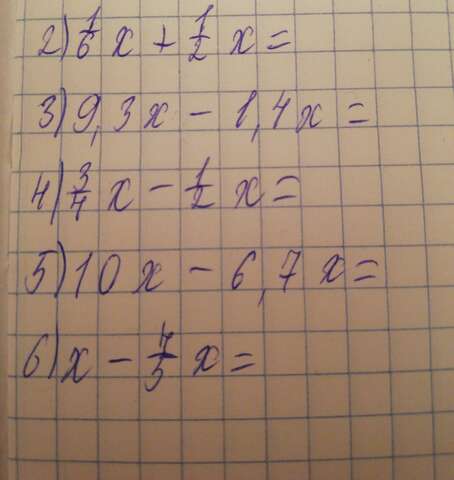 2) 1/6 x + 1/2 x =
3) 9,3x - 1,4x =
4) 3/4 x - 1/2 x =
5) 10x - 6,7x =
6) x - 4/5 x =